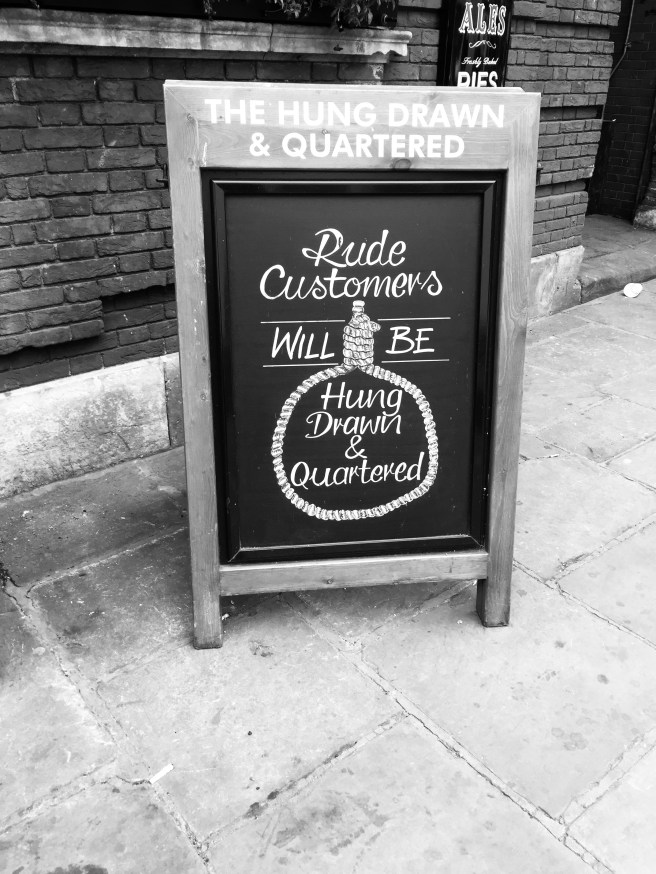 ALES
Freshly Baked
PIES
THE HUNG DRAWN
& QUARTERED
Rude
Customers
WILL BE
Hung
Drawn
&
Quartered